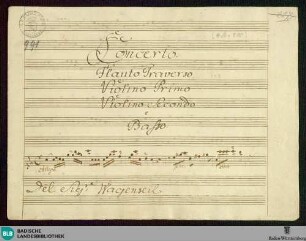 Concerto
Flauto Traverso
Violino Primo
Violino Secondo
e
Basso
Del Sig.r Wagenseil
BLB BADISCHE LANDESBIBLIOTHEK
Baden-Württemberg